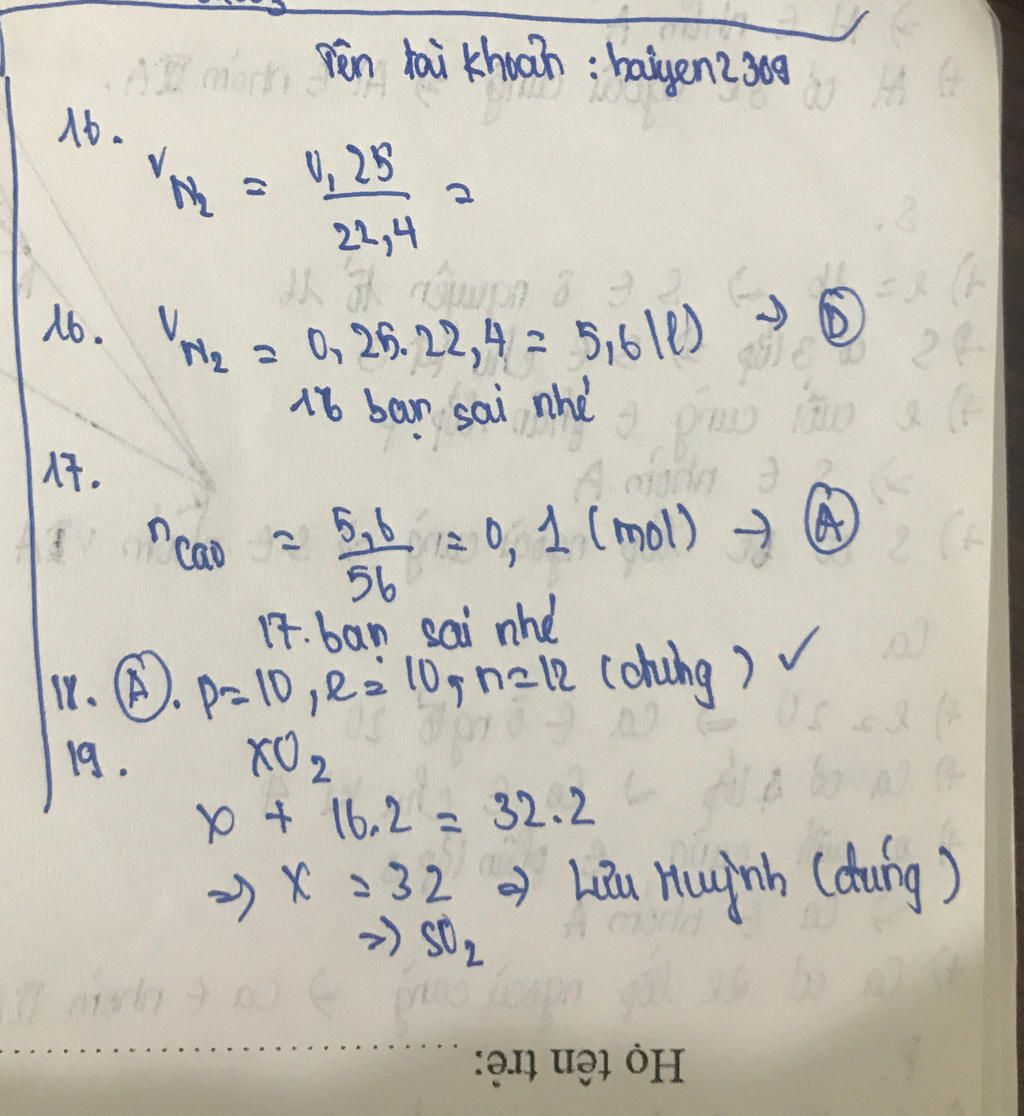 Tên tài khoản : haiyen2309
16.
V N₂ = 0,25/22,4 =
16. V N₂ = 0,25.22,4 = 5,6 (l) → D
16 bạn sai nhé
17.
n CaO = 5,6/56 = 0,1 (mol) → A
17. bạn sai nhé
18. A. p=10, e=10, n=12 (đúng) ✓
19. XO₂
X + 16.2 = 32.2
=> X = 32 => Lưu Huỳnh (đúng)
=> SO₂
Họ tên trẻ: